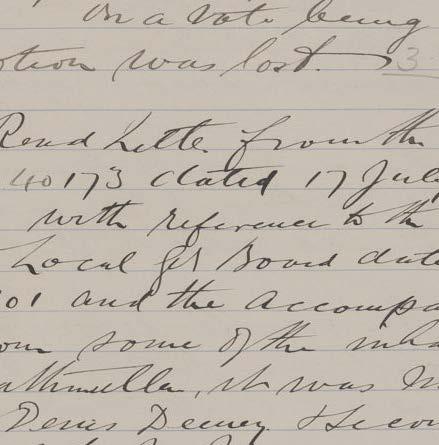 On a vote being
otion was lost. 3
Read Letter from the
40173 dated 17 July
with reference to the
Local Gt Board date
01 and the accompa
om some of the inha
athmullen, it was m
Denis Deeney. Secon